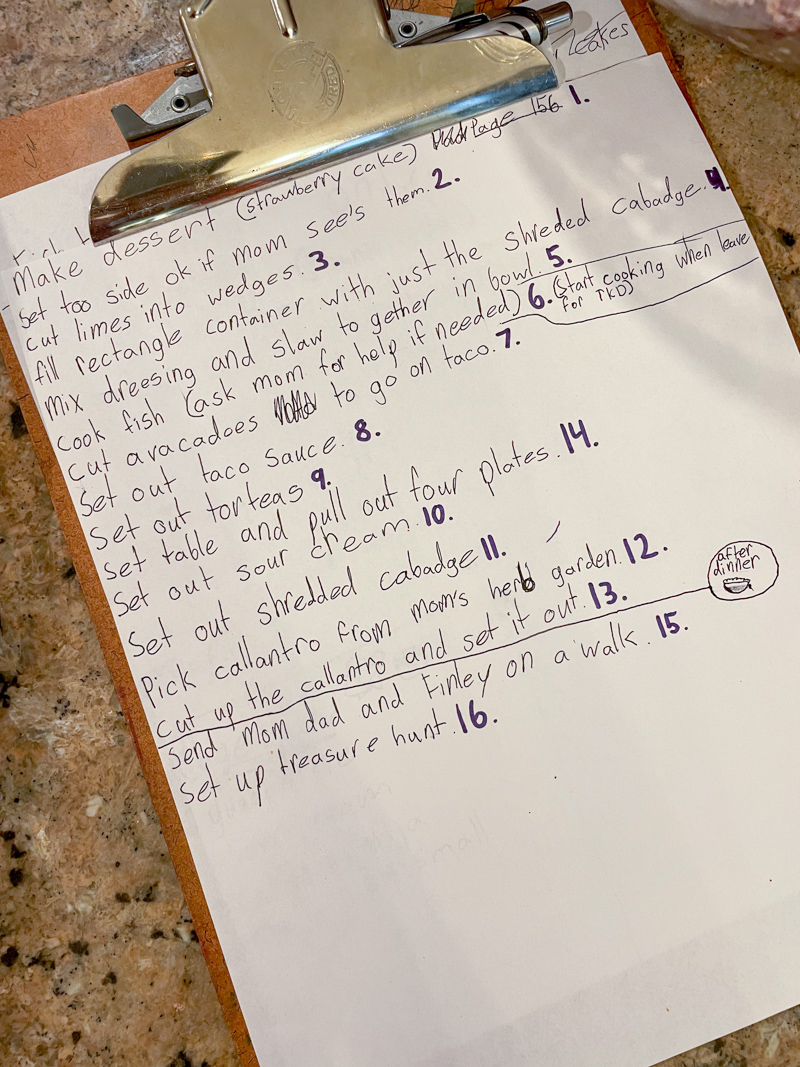 Make dessert (strawberry cake) Page 156 1.
Set too side ok if mom see's them. 2.
cut limes into wedges. 3.
fill rectangle container with just the shreded cabadge. 4.
mix dreesing and slaw to gether in bowl. 5.
cook fish (ask mom for help if needed) 6. (Start cooking when leave
for TKD)
cut avacadoes to go on taco. 7.
Set out taco sauce. 8.
Set out torteas 9.
Set table and pull out four plates. 14.
Set out sour cream. 10.
Set out shredded cabadge 11.
Pick callantro from mom's herb garden. 12.
cut up the callantro and set it out. 13.
after
dinner
Send Mom dad and Finley on a walk. 15.
Set up treasure hunt. 16.